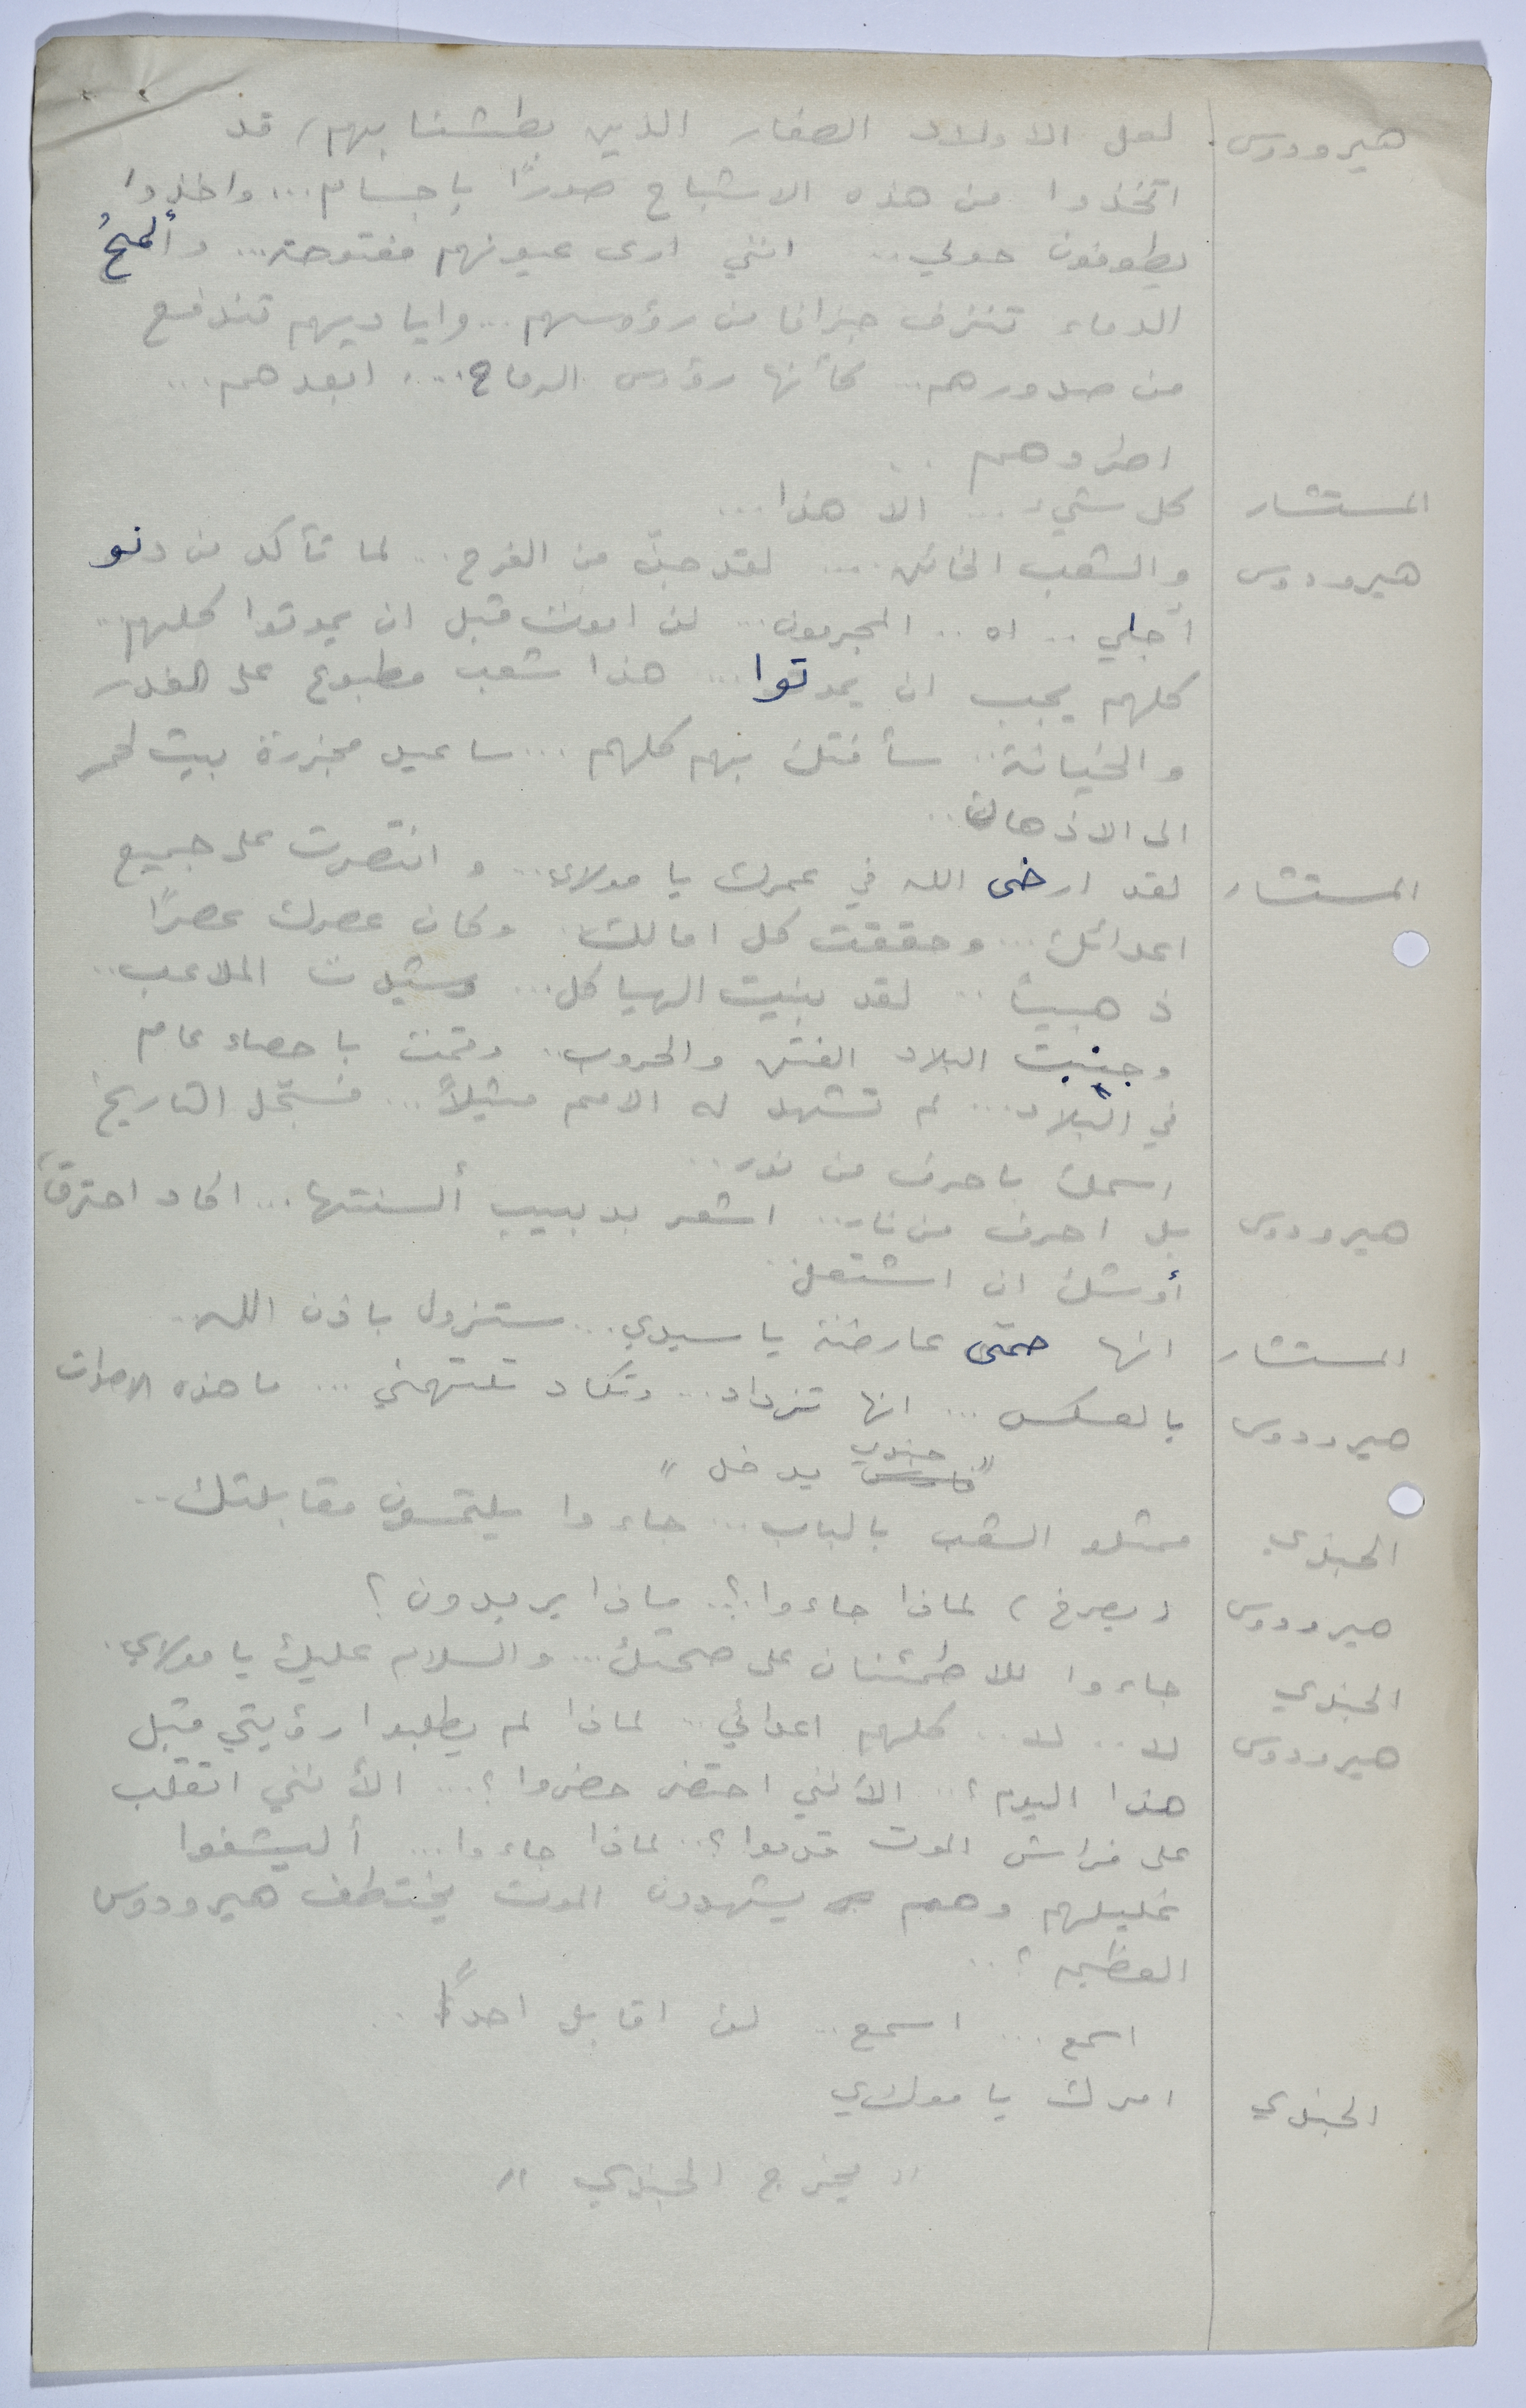 هيرودوس لعل الاولاد الصغار الذين بطشنا بهم، قد
اتخذوا من هذه الاشباح صورًا باجسام... واخذوا
يطوفون حولي.. انني ارى عيونهم مفتوحة... وألمحُ
الدماء تنزف من رؤوسهم... واياديهم تندفع
من صدورهم... كأنها رؤوس الرماح... ابعدهم...
اطردوهم..
المستشار كل شيء... الا هذا...
هيرودوس والشعب الخائن... لقد جنّ من الفرح... لما تأكد من دنو
أجلي.. اه.. المجرمون... لن اموت قبل ان يموتوا كلهم..
كلهم يجب ان يموتوا... هذا شعب مطبوع على الغدر
والخيانة.. سأفتك بهم كلهم... ساعيد مجزرة بيت لحم
الى الاذهان..
المستشار لقد ارضى الله في عمرك يا مولاي... وانتصرت على جميع
اعدائك... وحققت كل امالك. وكان عصرك عصرًا
ذهبيًا.. لقد بنيت الهياكل... وشيدت الملاعب..
وجنبت البلاد الفتن والحروب.. وقمت باحصاء عام
في البلاد... لم تشهد له الامم مثيلاً... فسجّل التاريخ
اسمك باحرف من نور..
هيرودوس بل احرف من نار.. اشعر بدبيب ألسنتها... اكاد احترق،
أوشك ان اشتعل.
المستشار انها حمّى عارضة يا سيدي... ستزول باذن الله.
هيرودوس بالعكس... انها تزداد... وتكاد تلتهمني... ما هذه الاصوات
" جندي يدخل "
الجندي ممثلو الشعب بالباب... جاءوا يلتمسون مقابلتك..
هيرودوس (يصرخ) لماذا جاءوا؟.. ماذا يريدون؟
الجندي جاءوا للاطمئنان على صحتك... والسلام عليك يا مولاي.
هيرودوس لا.. لا.. كلهم اعدائي.. لماذا لم يطلبوا رؤيتي قبل
هذا اليوم؟... الأنني احتضر حضروا؟... الأنني اتقلب
على فراش الموت قدموا؟.. لماذا جاءوا... أليشفوا
غليلهم وهم يشهدون الموت يختطف هيرودوس
العظيم؟..
اسمع... اسمع... لن اقابل احدًا..
الجندي امرك يا مولاي
" يخرج الجندي "